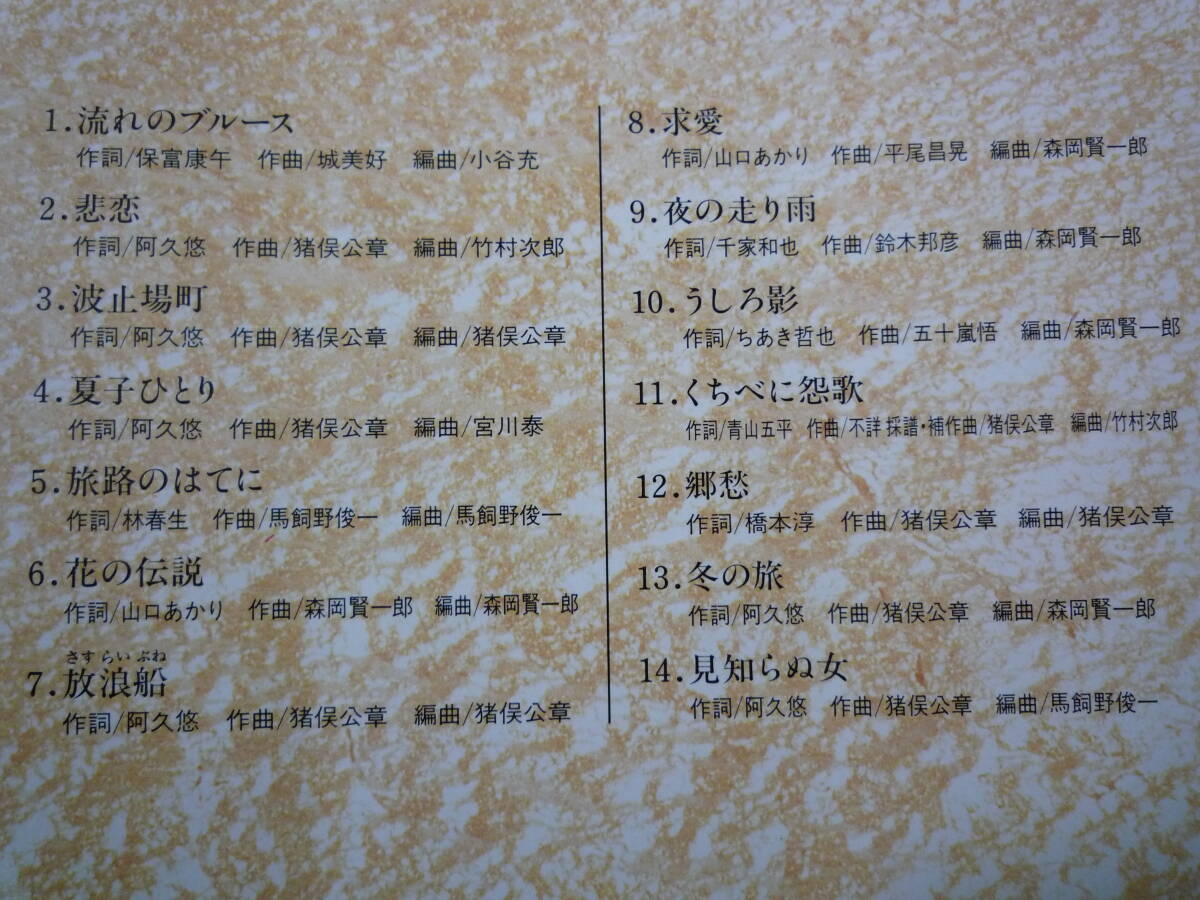 1.流れのブルース
作詞/保富康午 作曲/城美好 編曲/小谷充
2.悲恋
作詞/阿久悠 作曲/猪俣公章 編曲/竹村次郎
3.波止場町
作詞/阿久悠 作曲/猪俣公章 編曲/猪俣公章
4.夏子ひとり
作詞/阿久悠 作曲/猪俣公章 編曲/宮川泰
5.旅路のはてに
作詞/林春生 作曲/馬飼野俊一 編曲/馬飼野俊一
6.花の伝説
作詞/山口あかり 作曲/森岡賢一郎 編曲/森岡賢一郎
さすらいぶね
7.放浪船
作詞/阿久悠 作曲/猪俣公章 編曲/猪俣公章
8.求愛
作詞/山口あかり 作曲/平尾昌晃 編曲/森岡賢一郎
9.夜の走り雨
作詞/千家和也 作曲/鈴木邦彦 編曲/森岡賢一郎
10.うしろ影
作詞/ちあき哲也 作曲/五十嵐悟 編曲/森岡賢一郎
11.くちべに怨歌
作詞/青山五平 作曲/不詳 採譜・補作曲/猪俣公章 編曲/竹村次郎
12.郷愁
作詞/橋本淳 作曲/猪俣公章 編曲/猪俣公章
13.冬の旅
作詞/阿久悠 作曲/猪俣公章 編曲/森岡賢一郎
14.見知らぬ女
作詞/阿久悠 作曲/猪俣公章 編曲/馬飼野俊一